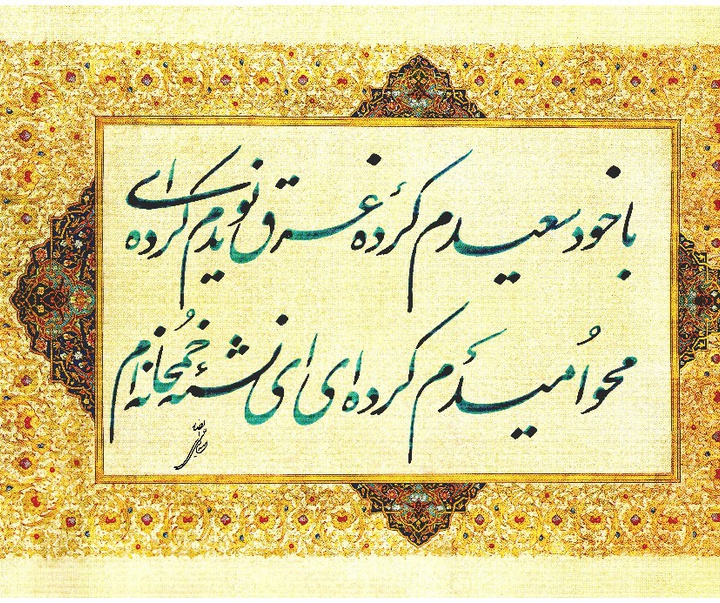 با خود سعیدم کرده غرق نویدم کرده ای
محو امیدم کرده ای ای نشئه خُمخانه ام